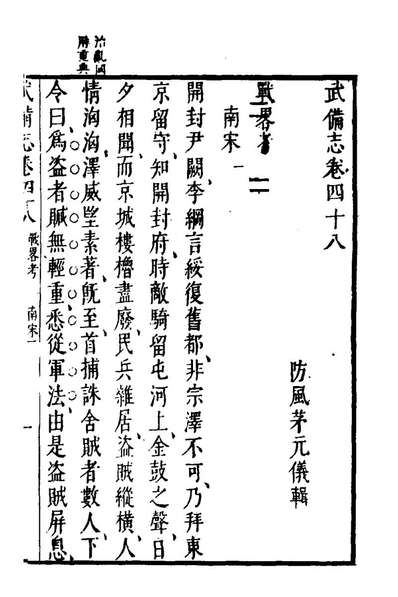 武備志卷四十八
防風茅元儀輯
戰畧考
南宋一
開封尹闕李綱言綏復舊都非宗澤不可乃拜東
京留守知開封府時敵騎留屯河上金鼓之聲日
夕相聞而京城樓櫓盡廢民兵雜居盗賊縱橫人
情洶洶澤威望素著旣至首捕誅舍賊者數人下
令曰爲盗者贓無輕重悉從軍法由是盗賊屏息
治亂國
重典
武備志卷四十八 戰畧考 南宋一 一